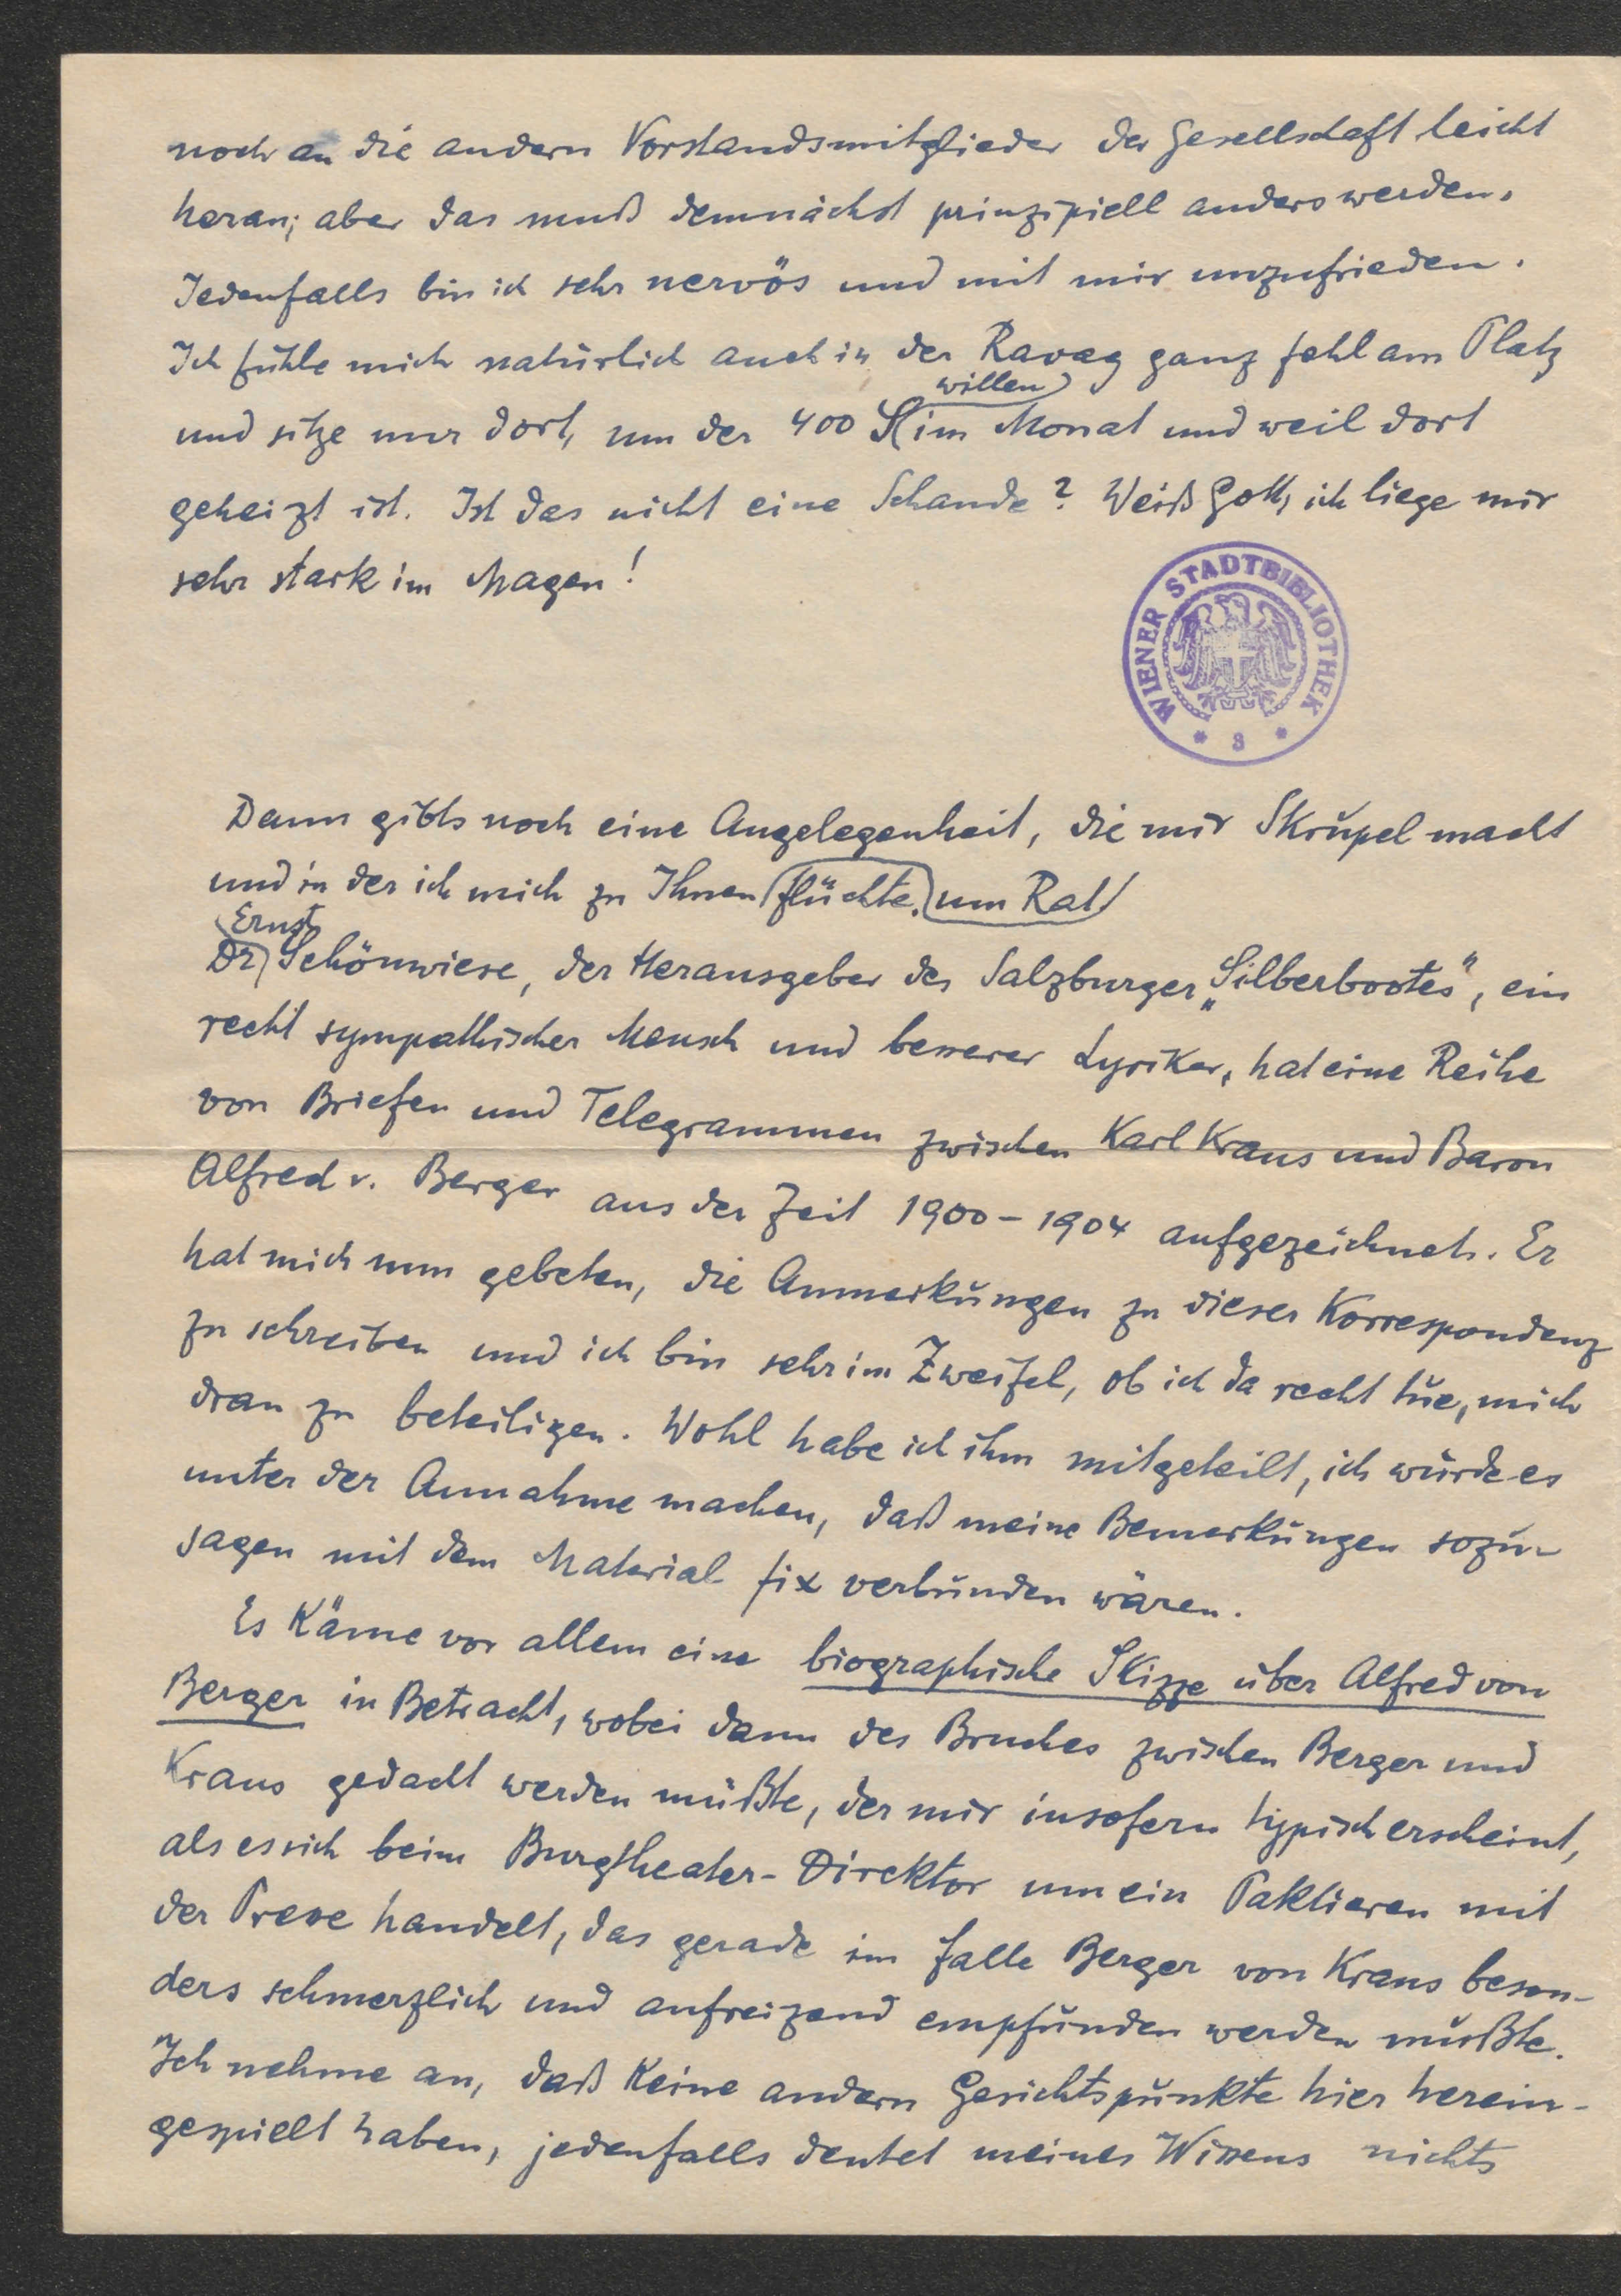 noch an die andern Vorstandsmitglieder der Gesellschaft leicht
heran; aber das muß demnächst prinzipiell anders werden.
Jedenfalls bin ich sehr nervös und mit mir unzufrieden.
Ich fühle mich natürlich auch in der Ravag ganz fehl am Platz
willen
und sitze nur dort, um der 400 S im Monat und weil dort
geheizt ist. Ist das nicht eine Schande? Weiß Gott, ich liege mir
sehr stark im Magen!
WIENER STADTBIBLIOTHEK
* 3 *
Dann gibts noch eine Angelegenheit, die mir Skrupel macht
und in der ich mich zu Ihnen flüchte, um Rat
Ernst
Dr Schönwiese, der Herausgeber des Salzburger „Silberbootes“, ein
recht sympathischer Mensch und besserer Lyriker, hat eine Reihe
von Briefen und Telegrammen zwischen Karl Kraus und Baron
Alfred v. Berger aus der Zeit 1900-1904 aufgezeichnet. Er
hat mich nun gebeten, die Anmerkungen zu dieser Korrespondenz
zu schreiben und ich bin sehr im Zweifel, ob ich da recht tue, mich
dran zu beteiligen. Wohl habe ich ihm mitgeteilt, ich würde es
unter der Annahme machen, daß meine Bemerkungen sozu-
sagen mit dem Material fix verbunden wären.
Es käme vor allem eine biographische Skizze über Alfred von
Berger in Betracht, wobei dann des Bruches zwischen Berger und
Kraus gedacht werden müßte, der mir insofern typisch erscheint,
als es sich beim Burgtheater-Direktor um ein Paktieren mit
der Presse handelt, das gerade im Falle Berger von Kraus beson-
ders schmerzlich und aufreizend empfunden werden mußte.
Ich nehme an, daß keine andern Gesichtspunkte hier herein-
gespielt haben, jedenfalls deutet meines Wissens nichts